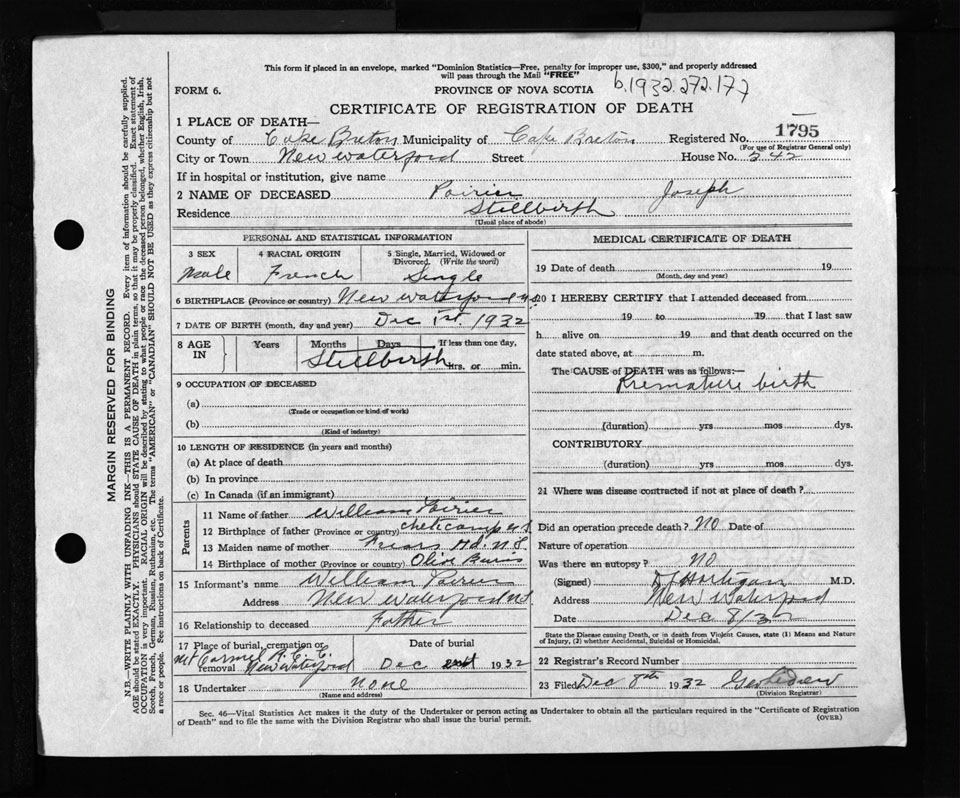 This form if placed in an envelope, marked "Dominion Statistics—Free, penalty for improper use, $300," and properly addressed
will pass through the Mail "FREE"
b.1932.272.177
FORM 6.
PROVINCE OF NOVA SCOTIA
CERTIFICATE OF REGISTRATION OF DEATH
1 PLACE OF DEATH—
County of Cape Breton Municipality of Cape Breton Registered No. 1795
(For use of Registrar General only)
City or Town New Waterford Street House No. 342
If in hospital or institution, give name
2 NAME OF DECEASED Poirier Joseph
Residence Stillbirth
(Usual place of abode)
PERSONAL AND STATISTICAL INFORMATION
3 SEX 4 RACIAL ORIGIN 5 Single, Married, Widowed or
Divorced. (Write the word)
Male French Single
6 BIRTHPLACE (Province or country) New Waterford N.S.
7 DATE OF BIRTH (month, day and year) Dec 1st. 1932
8 AGE IN Years Months Days If less than one day,
Stillbirth hrs. or min.
9 OCCUPATION OF DECEASED
(a)
(Trade or occupation or kind of work)
(b)
(Kind of industry)
10 LENGTH OF RESIDENCE (in years and months)
(a) At place of death
(b) In province
(c) In Canada (if an immigrant)
Parents
11 Name of father William Poirier
12 Birthplace of father (Province or country) Cheticamp N.S.
13 Maiden name of mother Friars Hd. N.S.
14 Birthplace of mother (Province or country) Olive
15 Informant's name William Poirier
Address New Waterford N.S.
16 Relationship to deceased Father
17 Place of burial, cremation or removal Date of burial
Mt Carmel R.C.C.
New Waterford Dec 1932
18 Undertaker None
(Name and address)
MEDICAL CERTIFICATE OF DEATH
19 Date of death 19
(Month, day and year)
20 I HEREBY CERTIFY that I attended deceased from
19 to 19 that I last saw
h alive on 19 and that death occurred on the
date stated above, at m.
The CAUSE of DEATH was as follows:—
Premature birth
(duration) yrs mos dys.
CONTRIBUTORY
(duration) yrs mos dys.
21 Where was disease contracted if not at place of death?
Did an operation precede death? No Date of
Nature of operation
Was there an autopsy? No
(Signed) Hartigan M.D.
Address New Waterford
Date Dec 8/32
State the Disease causing Death, or in death from Violent Causes, state (1) Means and Nature
of Injury, (2) whether Accidental, Suicidal or Homicidal.
22 Registrar's Record Number
23 Filed Dec 8th 1932 Geo
(Division Registrar)
Sec. 46—Vital Statistics Act makes it the duty of the Undertaker or person acting as Undertaker to obtain all the particulars required in the "Certificate of Registration
of Death" and to file the same with the Division Registrar who shall issue the burial permit.
(OVER)
MARGIN RESERVED FOR BINDING
N.B.—WRITE PLAINLY WITH UNFADING INK—THIS IS A PERMANENT RECORD. Every item of information should be carefully supplied.
AGE should be stated EXACTLY. PHYSICIANS should STATE CAUSE OF DEATH in plain terms, so that it may be properly classified. Exact statement of
OCCUPATION is very important. RACIAL ORIGIN will be described by stating to what people or race the deceased person belonged, whether English, Irish,
Scotch, French, German, Russian, Ruthenian, etc. The terms "AMERICAN" or "CANADIAN" SHOULD NOT BE USED as they express citizenship but not
a race or people. See instructions on back of Certificate.